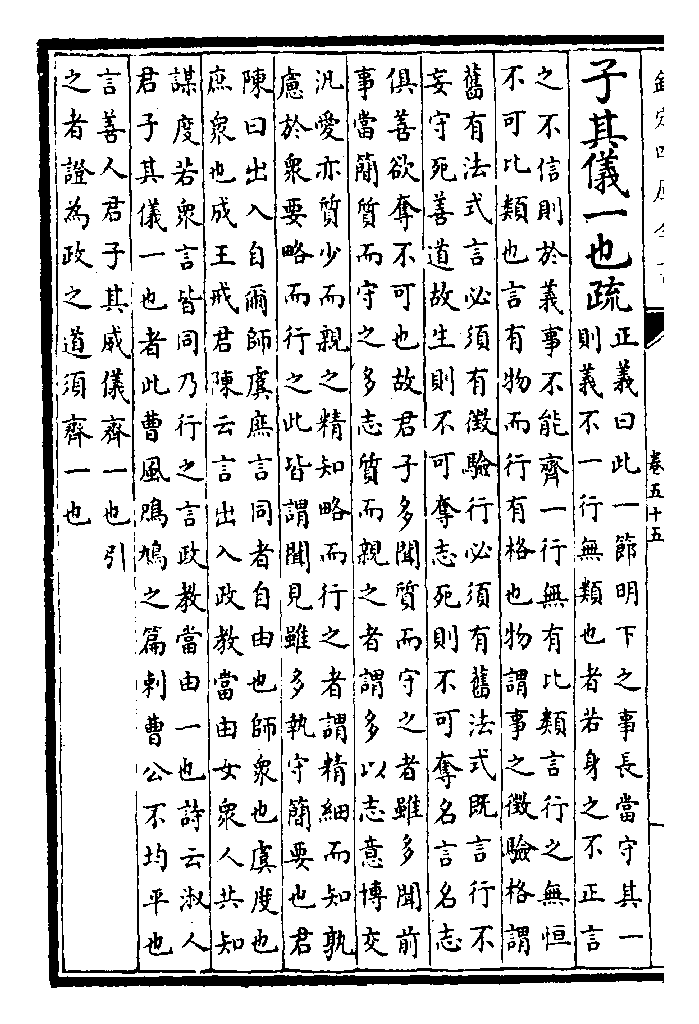 欽定四庫全書
卷五十五
子其儀一也疏
正義曰此一節明下之事長當守其一
則義不一行無類也者若身之不正言
之不信則於義事不能齊一行無有比類言行之無恒
不可比類也言有物而行有格也物謂事之徵驗格謂
舊有法式言必須有徵驗行必須有舊法式既言行不
妄守死善道故生則不可奪志死則不可奪名言名志
俱善欲奪不可也故君子多聞質而守之者雖多聞前
事當簡質而守之多志質而親之者謂多以志意博交
汎愛亦質少而親之精知略而行之者謂精細而知孰
慮於衆要略而行之此皆謂聞見雖多執守簡要也君
陳曰出入自爾師虞庶言同者自由也師衆也虞度也
庶衆也成王戒君陳云言出入政教當由女衆人共知
謀度若衆言皆同乃行之言政教當由一也詩云淑人
君子其儀一也者此曹風鳲鳩之篇刺曹公不均平也
言善人君子其威儀齊一也引
之者證為政之道須齊一也